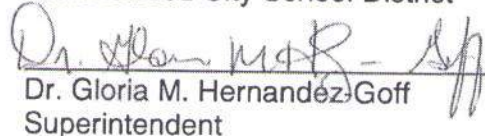 City School District
Dr. Gloria M. Hernandez-Goff
Dr. Gloria M. Hernandez-Goff
Superintendent